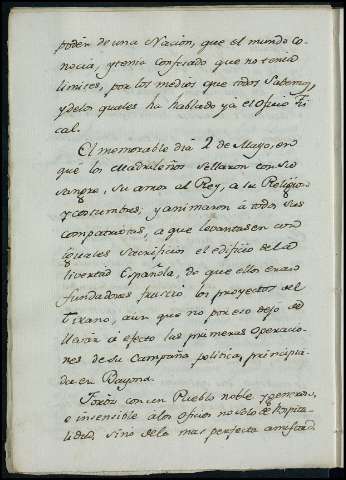 poder de una Nacion, que el mundo co-
nocia, y tenia confesado que no tenia
limites, por los medios que todos sabemos,
y delos quales ha hablado ya el Oficio Fis-
cal.
El memorable dia 2 de Mayo, en
que los Madrileños sellaron con su
sangre, su amor al Rey, a su Religion
y costumbres; y animaron á todos sus
compatriotas, a que levantasen con
iguales sacrificios el edificio de la
livertad Española, de que ellos eran
fundadores, los proyectos del
Tirano, aun que no por eso dejó de
llevar á efecto las primeras operacio-
nes de su Campaña politica, principia-
da en Bayona.
Feróz con un Pueblo noble y generoso,
e insensible alos oficios no solo de hospita-
lidad, sino dela mas perfecta amistad